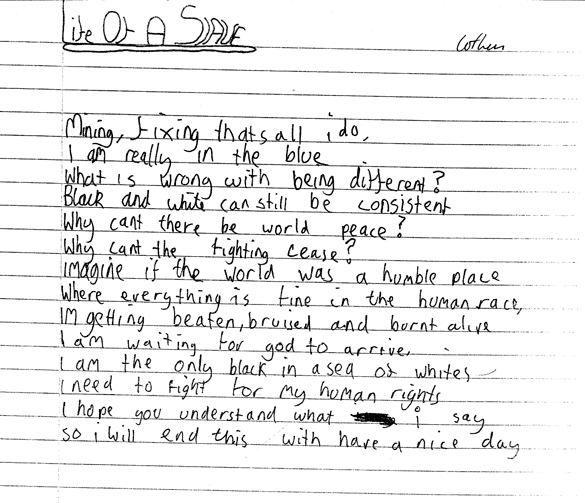 Life Of A SLAVE
Mining, fixing thats all i do,
I am really in the blue
What is wrong with being different?
Black and white can still be consistent
Why cant there be world peace?
Why cant the fighting cease?
imagine if the world was a humble place
Where everything is fine in the human race,
IM getting beaten, bruised and burnt alive
I am waiting for god to arrive.
I am the only black in a sea of whites
I need to fight for my human rights
I hope you understand what i say
so i will end this with have a nice day